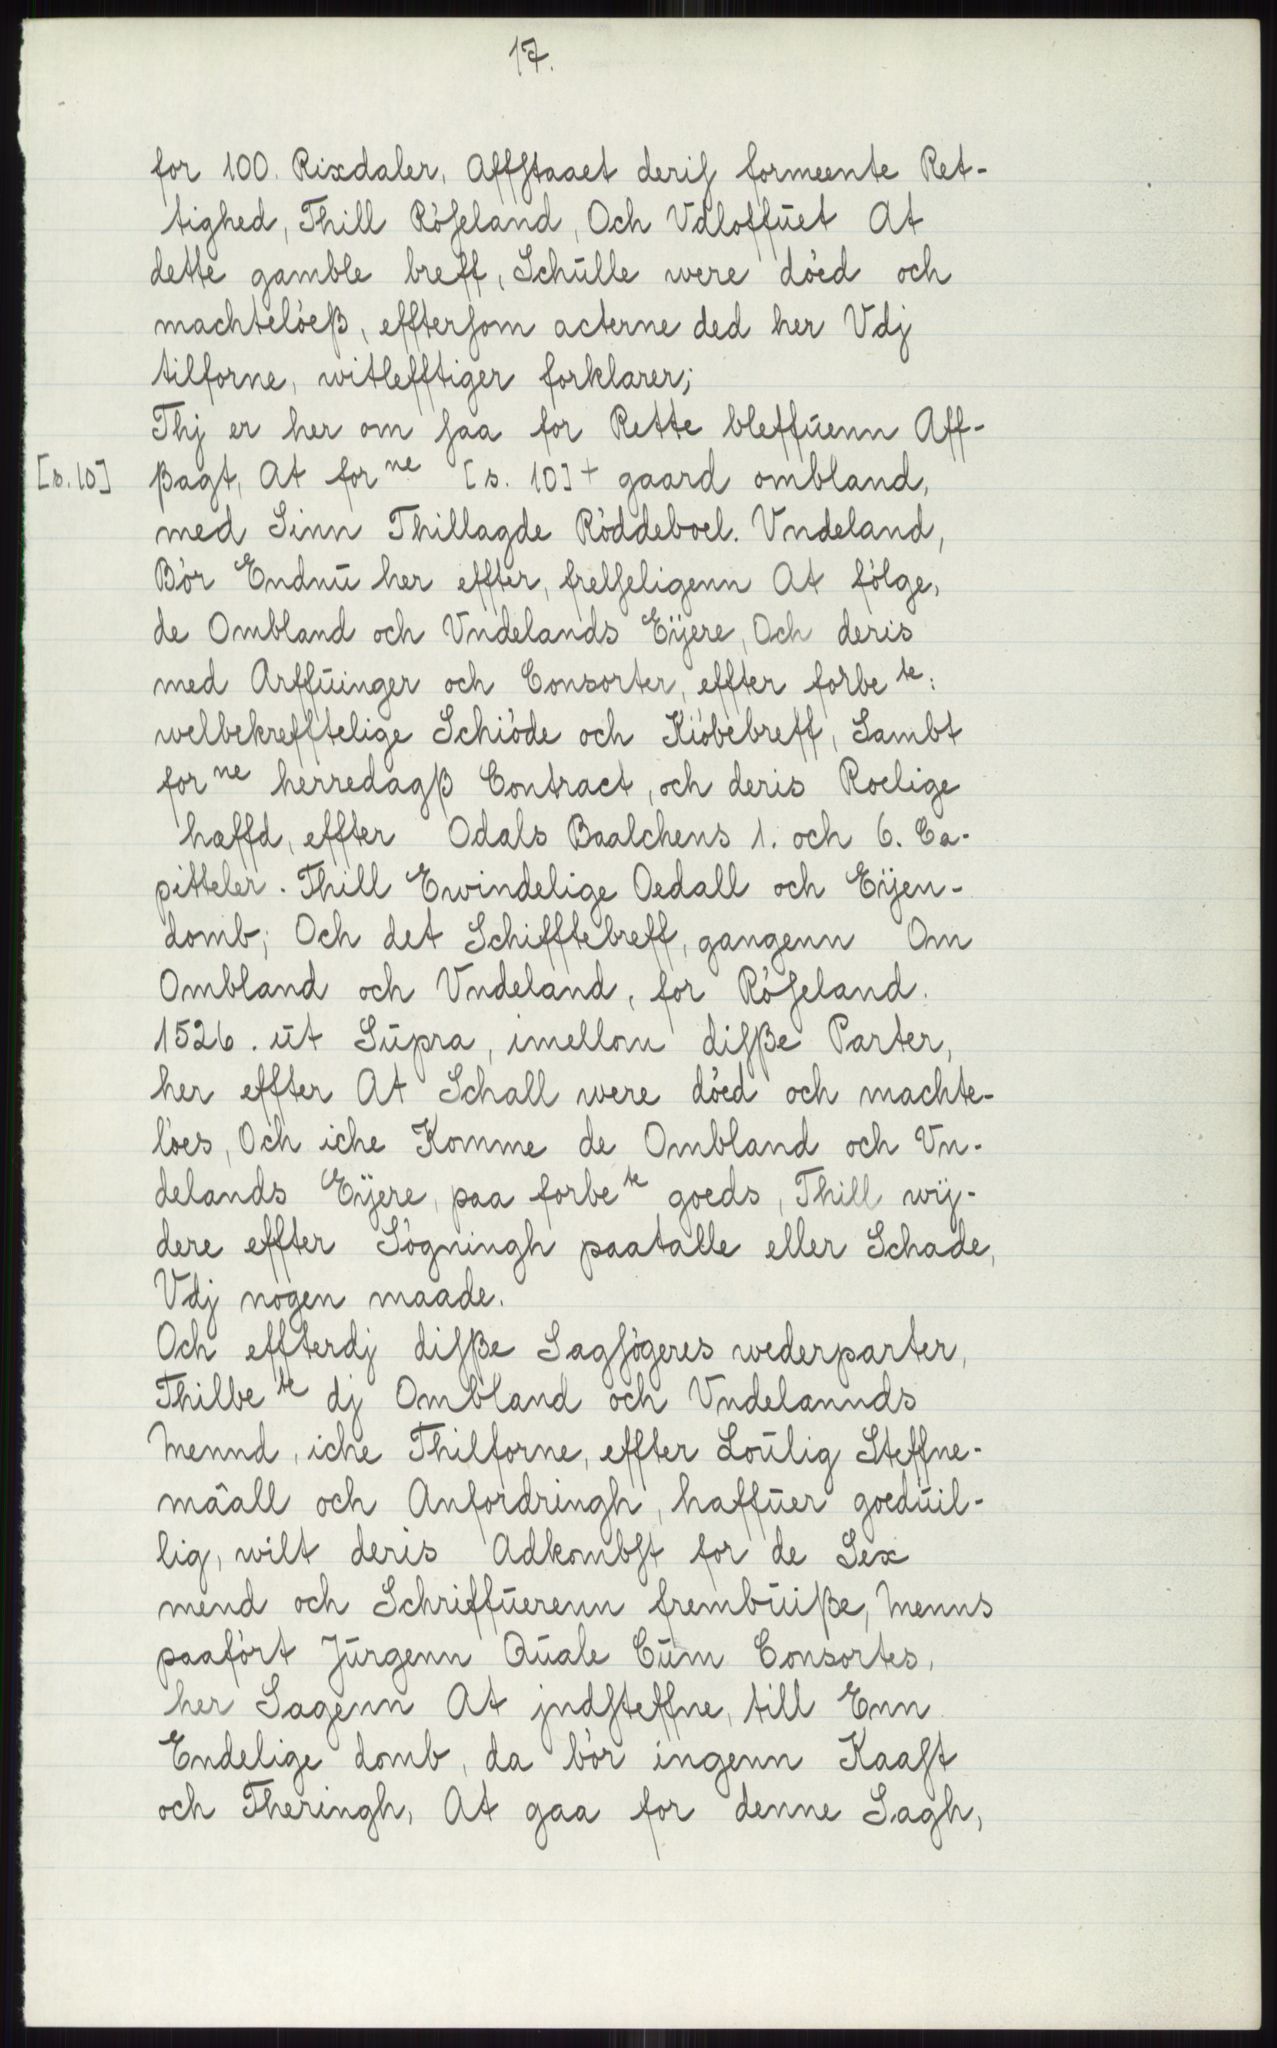 17.
for 100. Rixdaler, Affstaaet deris formeente Ret-
tighed, Thill Röseland, Och Vdloffūet At
dette gamble breff, Schūlle were döed och
machtelöeß, efftersom acterne ded her Vdj
tilforne, witlefftiger forklarer;
Thj er her om saa for Rette bleffūenn Aff-
[s. 10] ßagt, At for ne [s. 10] + gaard ombland,
med Sinn Thillagde Röddeboel. Vndeland,
Bör Endnū her effter, frelseligenn At fölge,
de Ombland och Vndelands Eÿere, Och deris
med Arffūinger och Consorter, effter forbe te:
welbekrefftelige Schiöde och Kiöbebreff, Sambt
for ne herredagß Contract, och deris Roelige
hæffd, effter Odals Baalchens 1. och 6. Ca-
pitteler. Thill Ewindelige Oedall och Eÿen-
domb; Och det Schifftebreff, gangenn Om
Ombland och Vndeland, for Röseland.
1526. ūt Sūpra, imellom disße Parter,
her effter At Schall were döed och machte-
löes, Och iche Komme de Ombland och Vn-
delands Eÿere, paa forbe te goeds, Thill wÿ-
dere effter Sögningh paatalle eller Schade,
Vdj nogen maade.
Och effterdj disße Sagsögeres wederparter,
Thilbe te dj Ombland och Vndelannds
Mennd, iche Thilforne, effter Loūlig Steffne-
māall och Anfordringh, haffūer goedūil-
lig, wilt deris Adkombst for de Sex
mend och Schriffūerenn frembūiße, Menns
paafört Jūrgenn Qūale Cūm Consortes,
her Sagenn At jndsteffne, till Enn
Endelige domb, da bör ingenn Kaast
och Theringh, At gaa for denne Sagh,